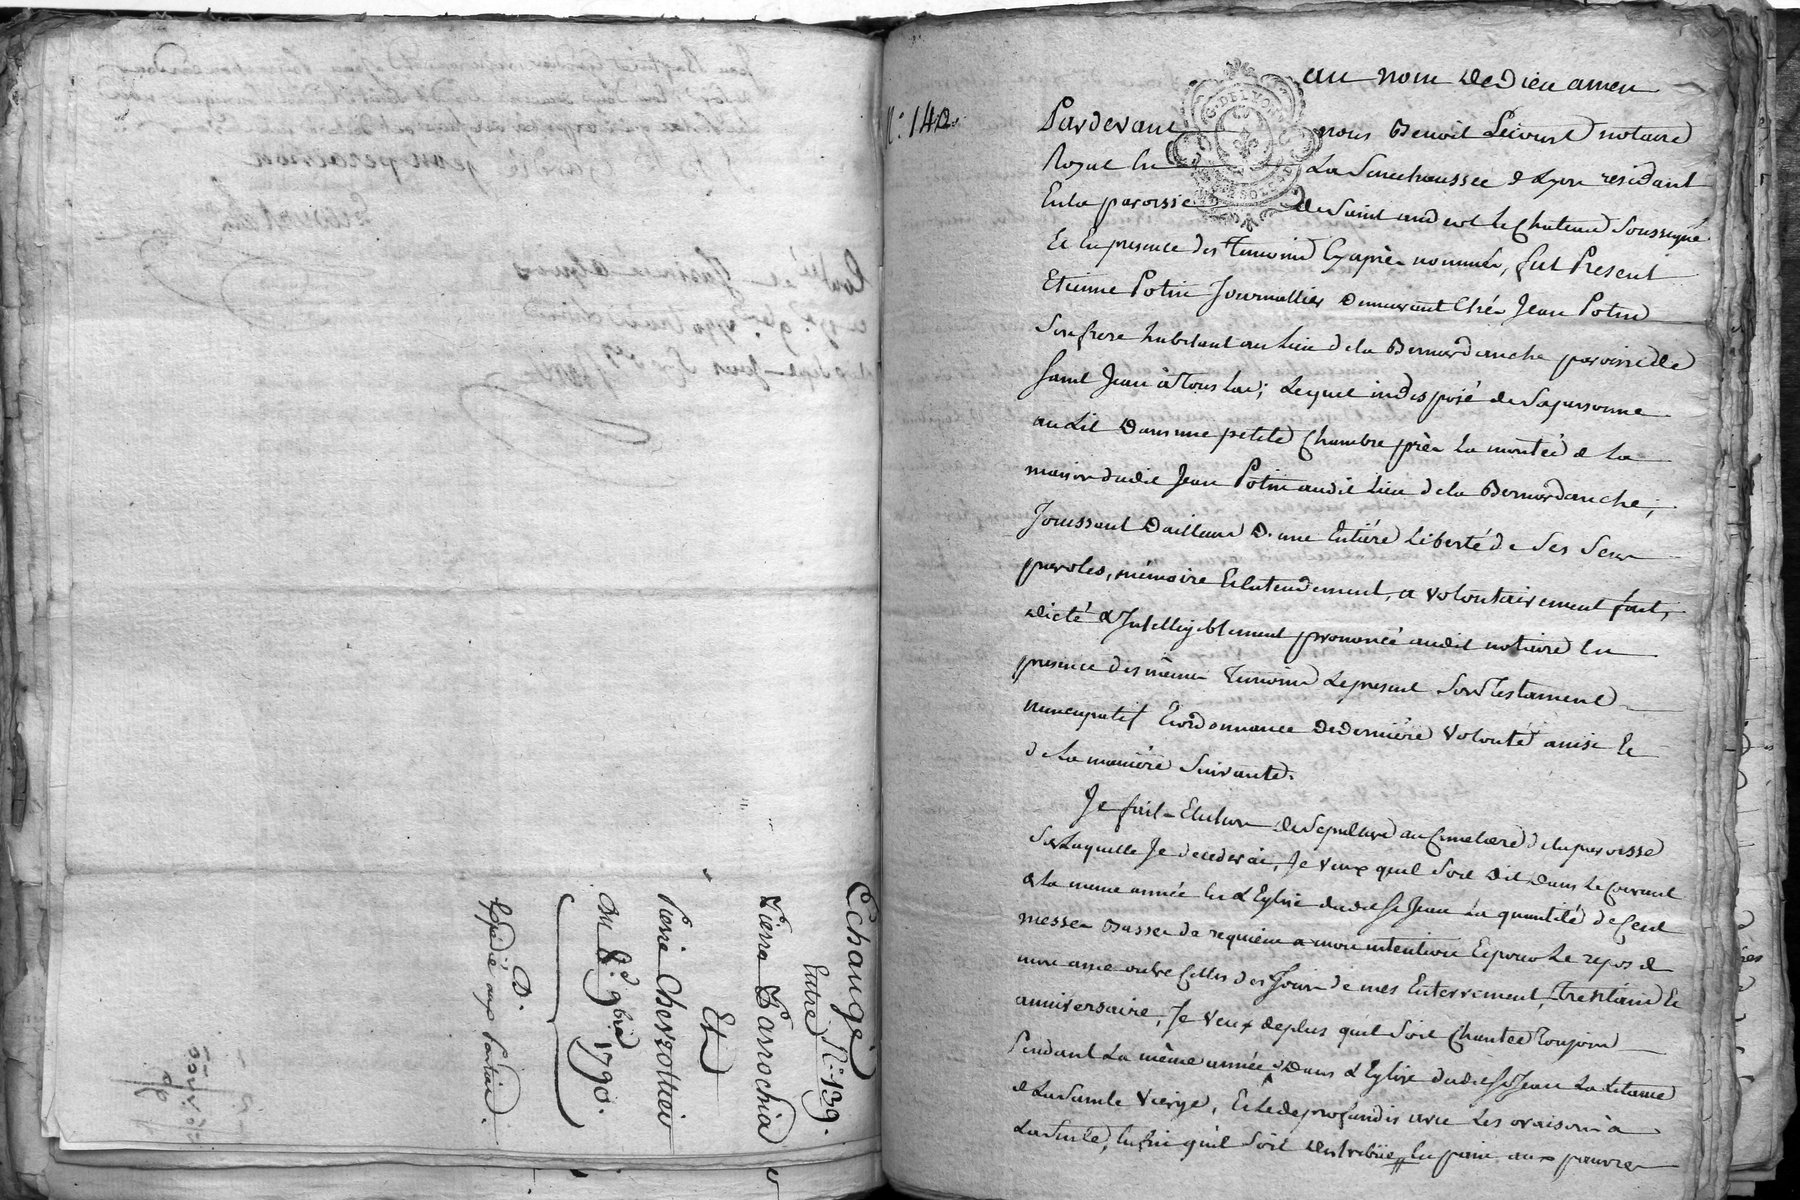 Echange N.º 139.
Entre
Pierre Parrochia
Et
Pierre Cherzottier
Du 8.e 9bre 1790.
D.
Expédié aux Parties.
N.º 140.
au nom de Dieu amen
Pardevant nous Benoit Lecourt notaire
Royal en La Senechaussée de Lyon residant
En la paroisse de Saint andeol le Chateau Soussigné
Et En presence des Temoins Cy après nommés, fut Present
Etienne Potin Journallier Demeurant Chés Jean Potin
Son frere habitant au Lieu de la Bernardanche paroisse de
Saint Jean à Touslas; Lequel indisposé de Sa personne
au Lit Dans une petite Chambre près La montée de La
maison dudit Jean Potin audit Lieu de la Bernardanche;
Jouissant D'ailleurs D'une Entière Liberté de Ses Sens
paroles, mémoire Et Entendement, a volontairement fait,
dicté & Intelligiblement prononcé audit notaire En
presence des mêmes Temoins Le present Son Testament
nuncupatif Et ordonnance de dernière volonté ainsi Et
de La manière Suivante.
Je fais Election de Sepulture au Cimetiere de la paroisse
Sur Laquelle Je decederai, Je veux quil Soit Dit Dans Le Courant
de la meme année En L'Eglise dudit St Jean La quantité de Cent
messes Basses de requiem a mon intention Et pour Le repos de
mon ame outre Celles des Jours de mes Enterrement, trentain Et
anniversaire, Je veux de plus quil Soit Chantée Toujours
Pendant La même année Dans L'Eglise dudit St Jean La Litanie
de La Sainte Vierge, Et Le deprofundis avec Les oraisons à
La Suite, Enfin qu'il Soit distribué En pain aux pauvres